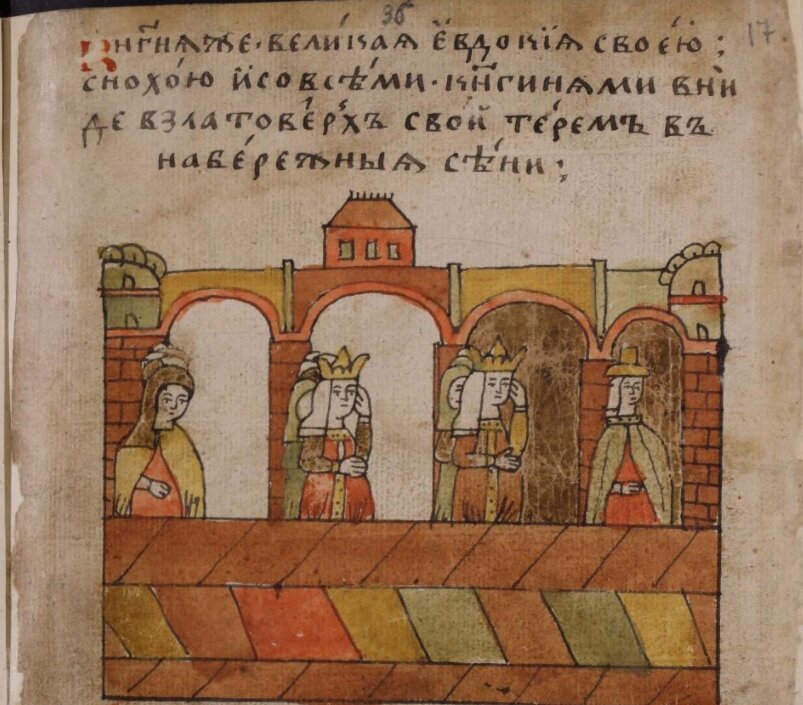 36
17.
Кн҃гнѧже· вели́каѧ е҆вдокі́ѧ свое́ю ;
снохо́ю и҆совсѣ́ми· кн҃гинѧми вни́
де взлатове́рхъ сво́й те́ремъ въ
набе́режныѧ сѣ́ни ;